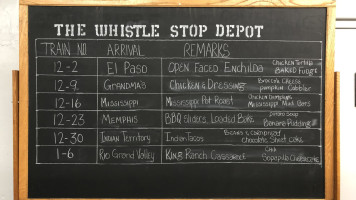 THE WHISTLE STOP DEPOT
TRAIN NO ARRIVAL REMARKS
12-2 El Paso OPEN FACED ENCHILDA Chicken Tortilla BAKED FUDGE
12-9 GRANDMA'S CHICKEN & DRESSING Broccoli Cheese pumpkin Cobbler
12-16 MISSISSIPPI Mississippi Pot Roast Chicken Dumplings Mississippi Mud Bars
12-23 MEMPHIS BBQ Sliders, Loaded Baked Potato Soup Banana Pudding
12-30 INDIAN TERRITORY Indian Tacos BEANS & CORNBREAD chocolate Sheet cake
1-6 RIO GRAND VALLEY KING RANCH CASSEROLE Sopapilla Cheesecake